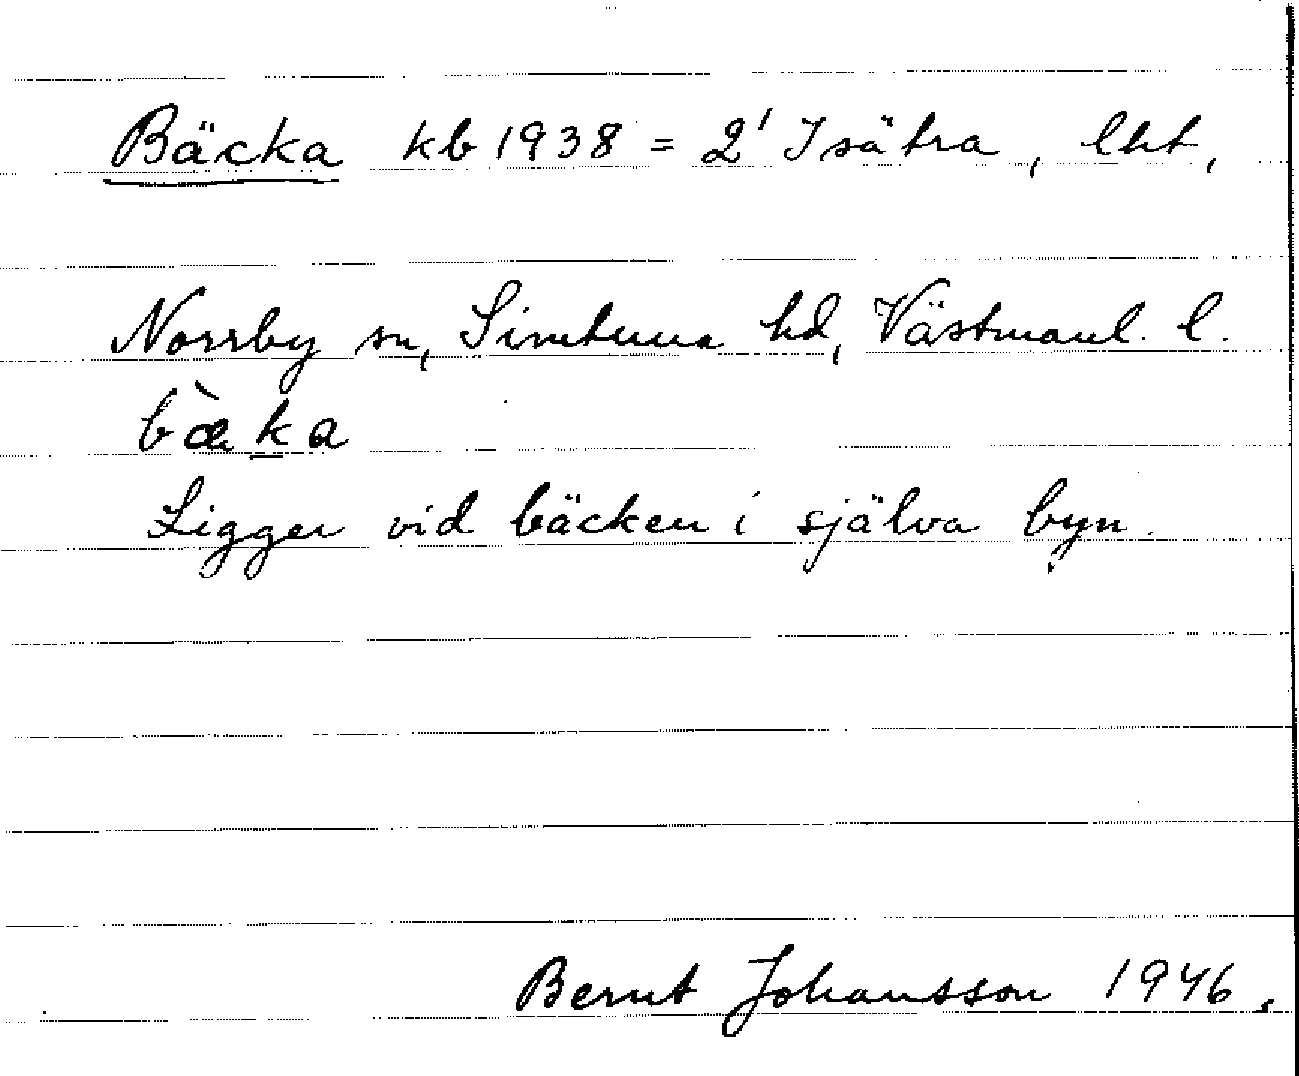 Bäcka kb 1938 = 2¹ Isätra, lht,
Norrby sn, Simtuna hd, Västmanl. l.
bæ̀ka
Ligger vid bäcken i själva byn.
Bernt Johansson 1946.